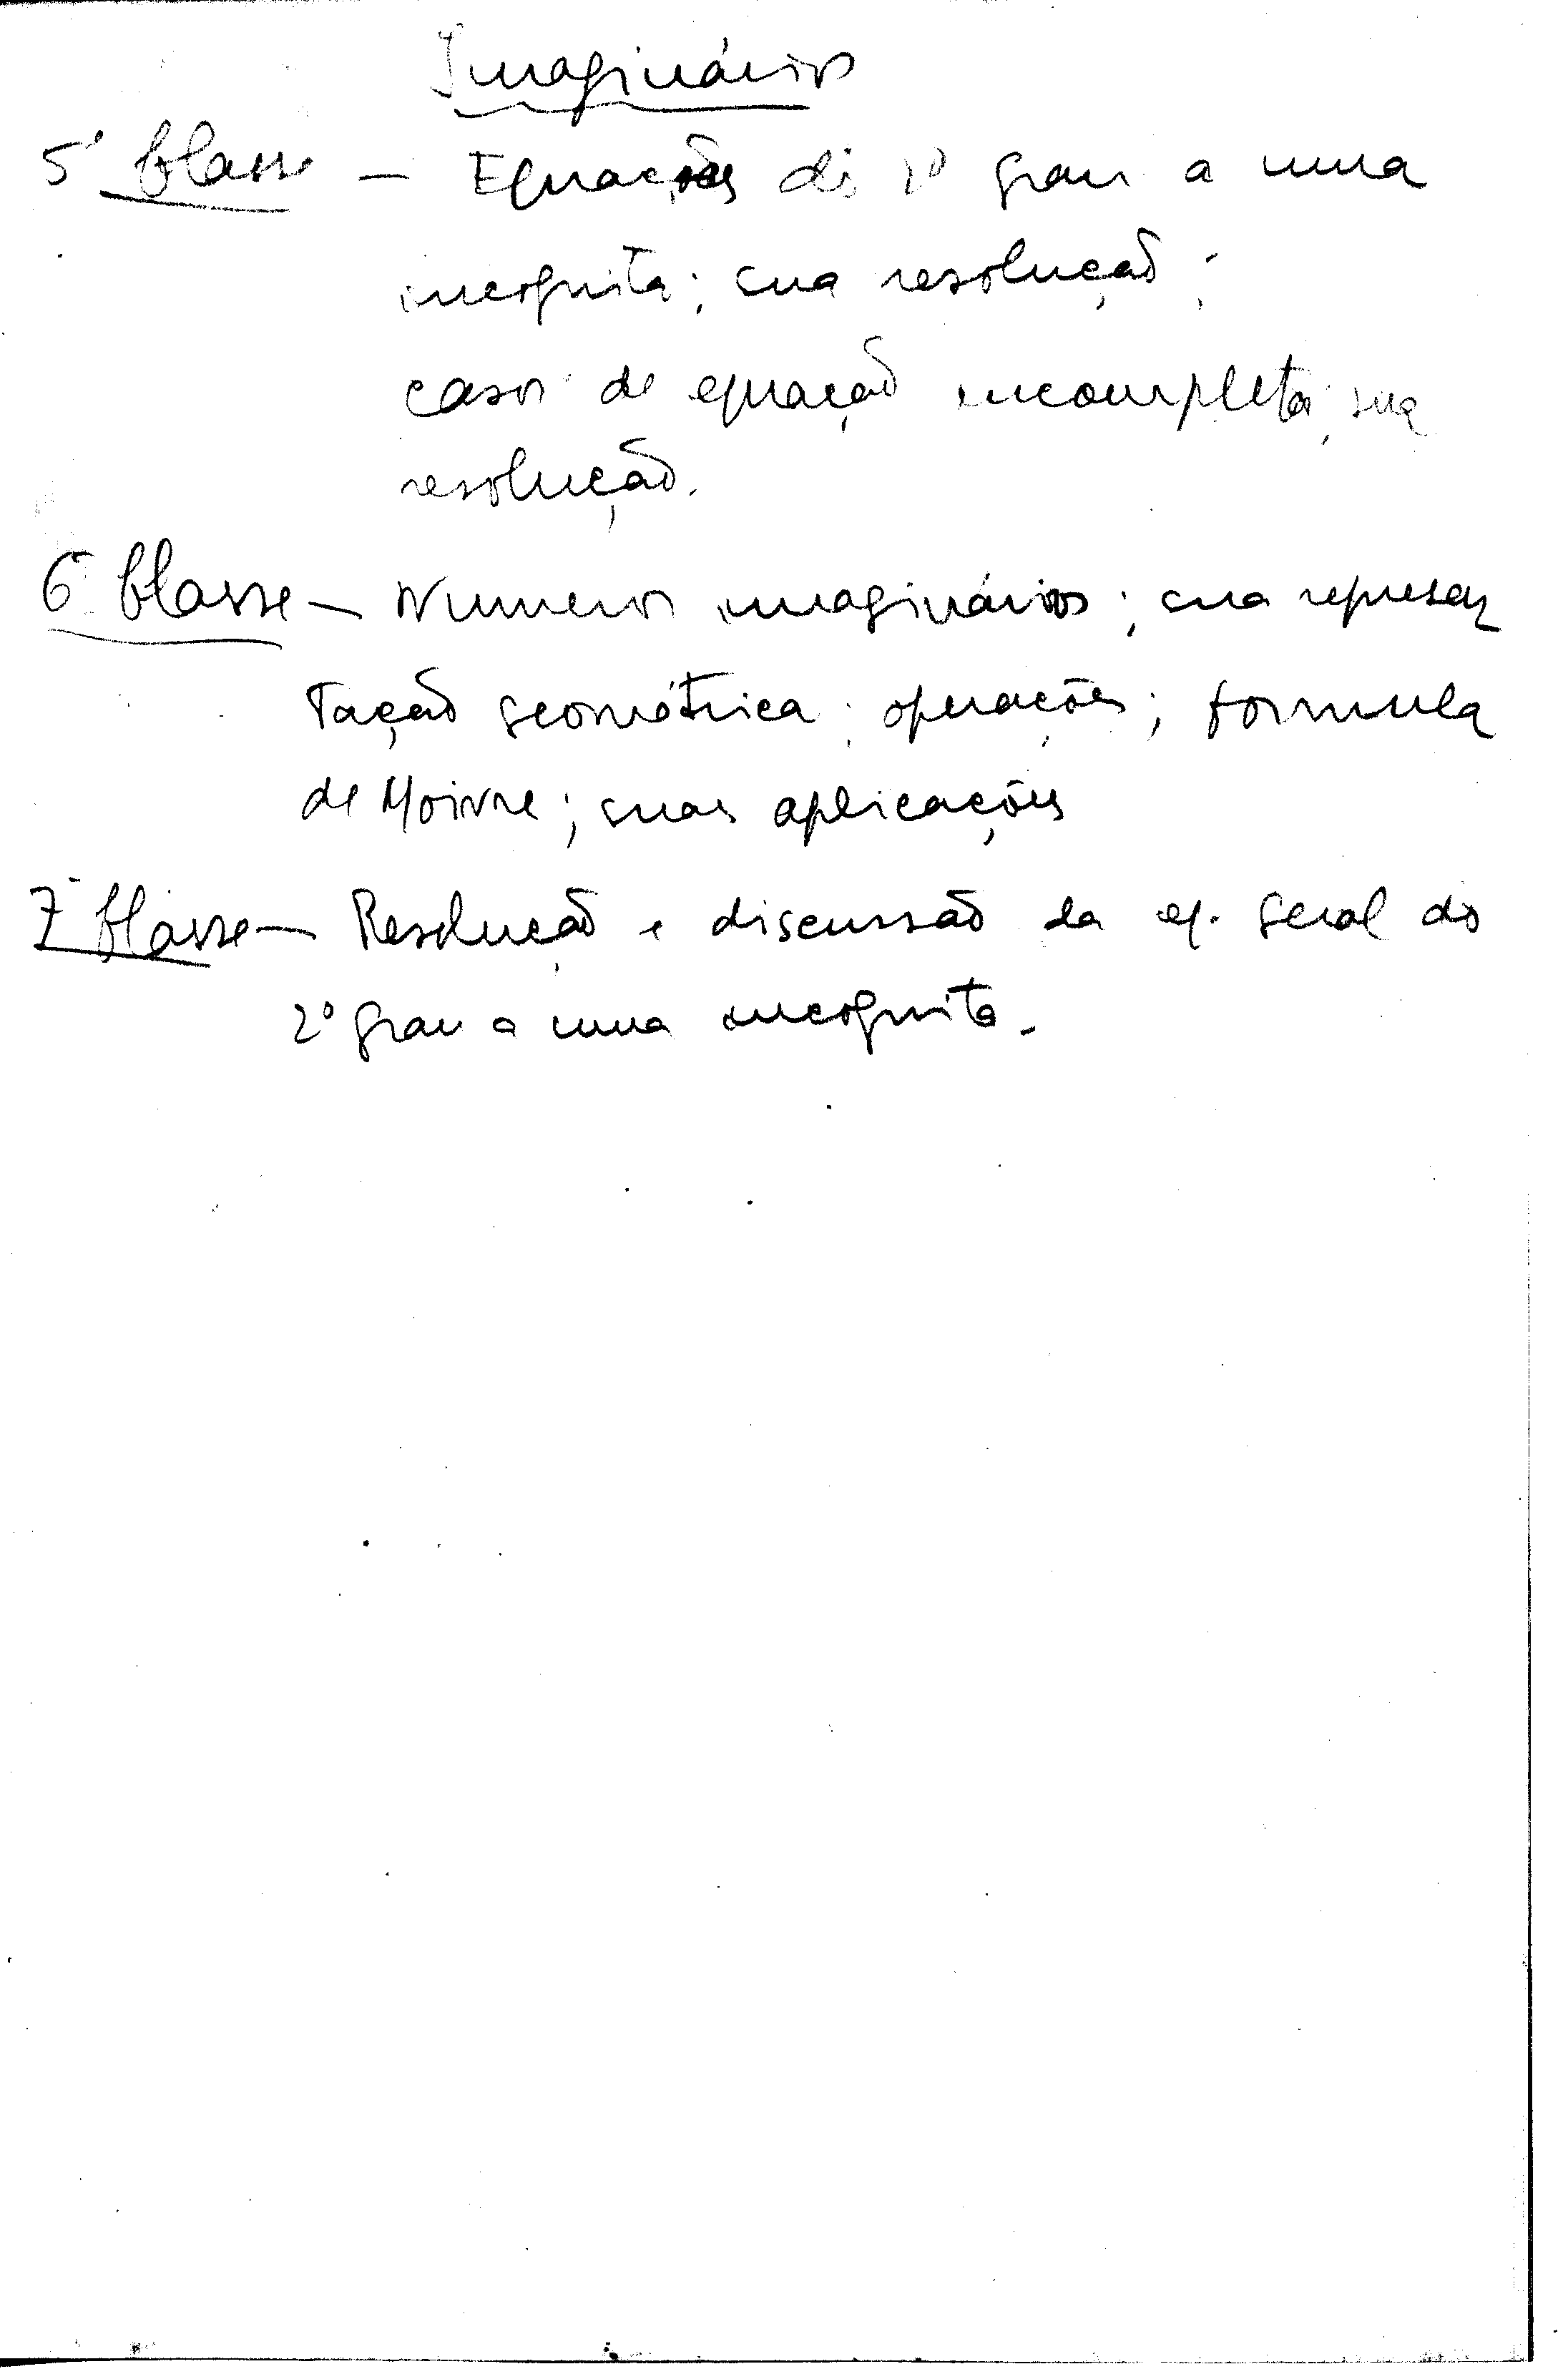 Imaginários
5ª Classe — Equações do 2º grau a uma
incognita; sua resolução;
casos de equação incompleta; sua
resolução.
6ª Classe — Numeros imaginários; sua represen
tação geométrica; operações; formula
de Moivre; suas aplicações
7ª Classe — Resolução e discussão da eq. geral do
2º grau a uma incognita.